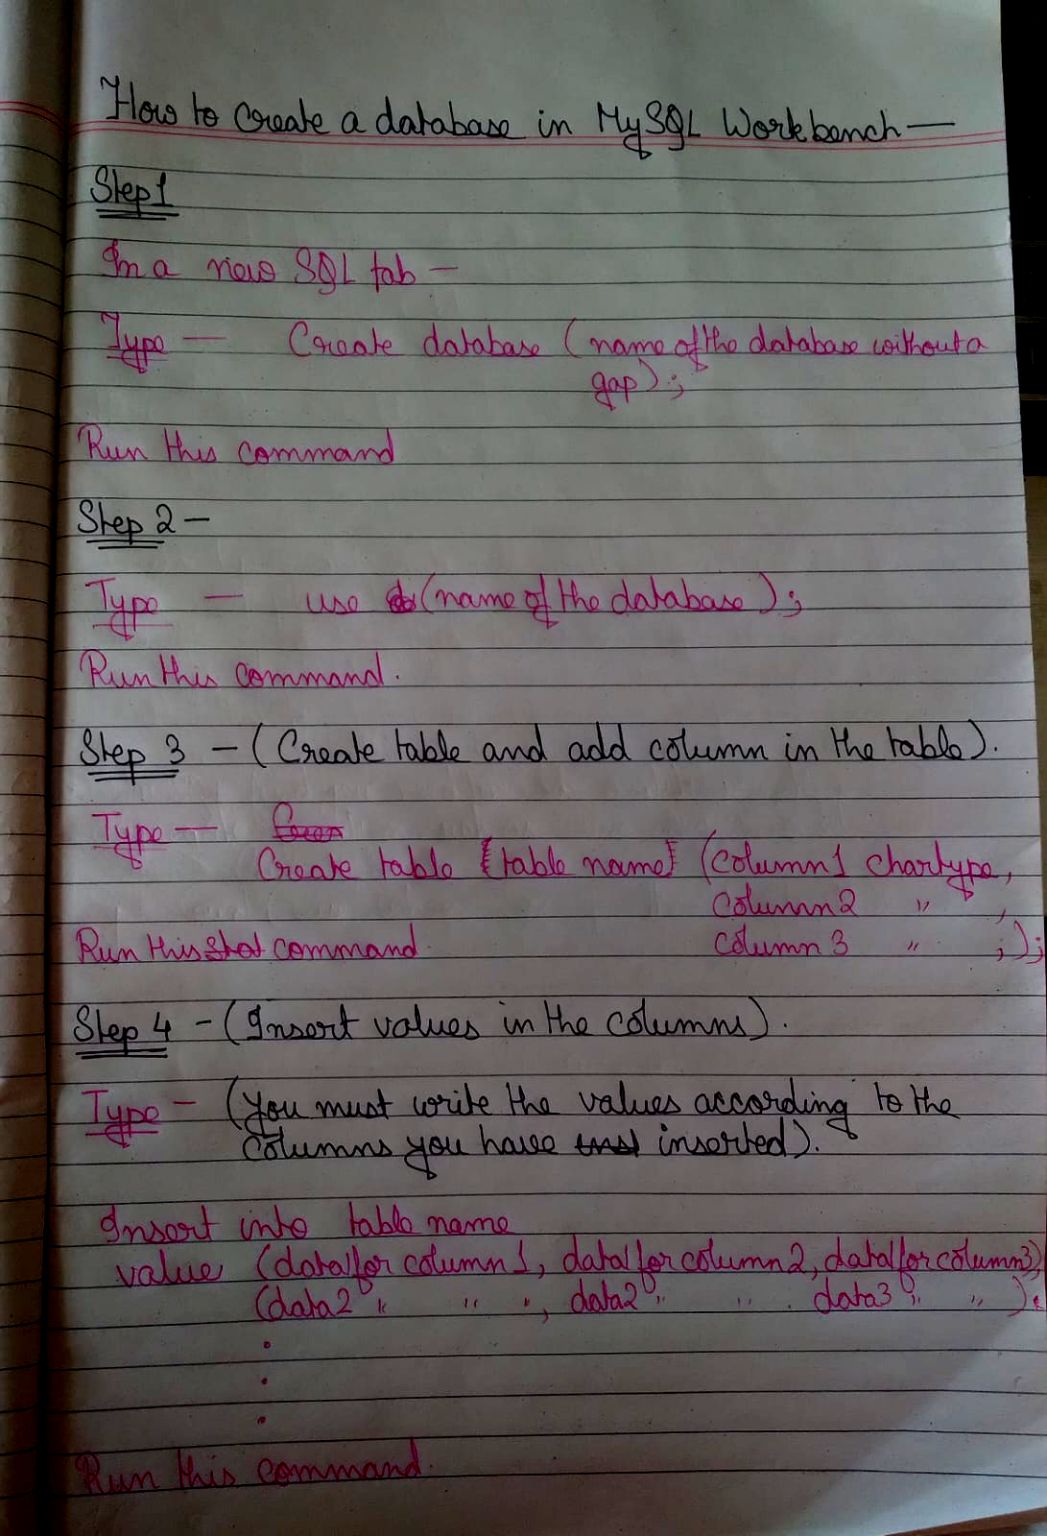 How to Create a database in MySQL Workbench —
Step 1
In a new SQL tab —
Type — Create database (name of the database without a
gap);
Run this command
Step 2 —
Type — use (name of the database);
Run this command.
Step 3 — (Create table and add column in the table).
Type —
Create table [table name] (column1 chartype,
column2 " ,
Run this command column 3 " ;);
Step 4 - (Insert values in the columns).
Type - (You must write the values according to the
columns you have inserted).
Insert into table name
value (data1 for column1, data1 for column2, data1 for column3)
(data2 " " ", data2 " " data3 " " ).
.
.
.
Run this command.